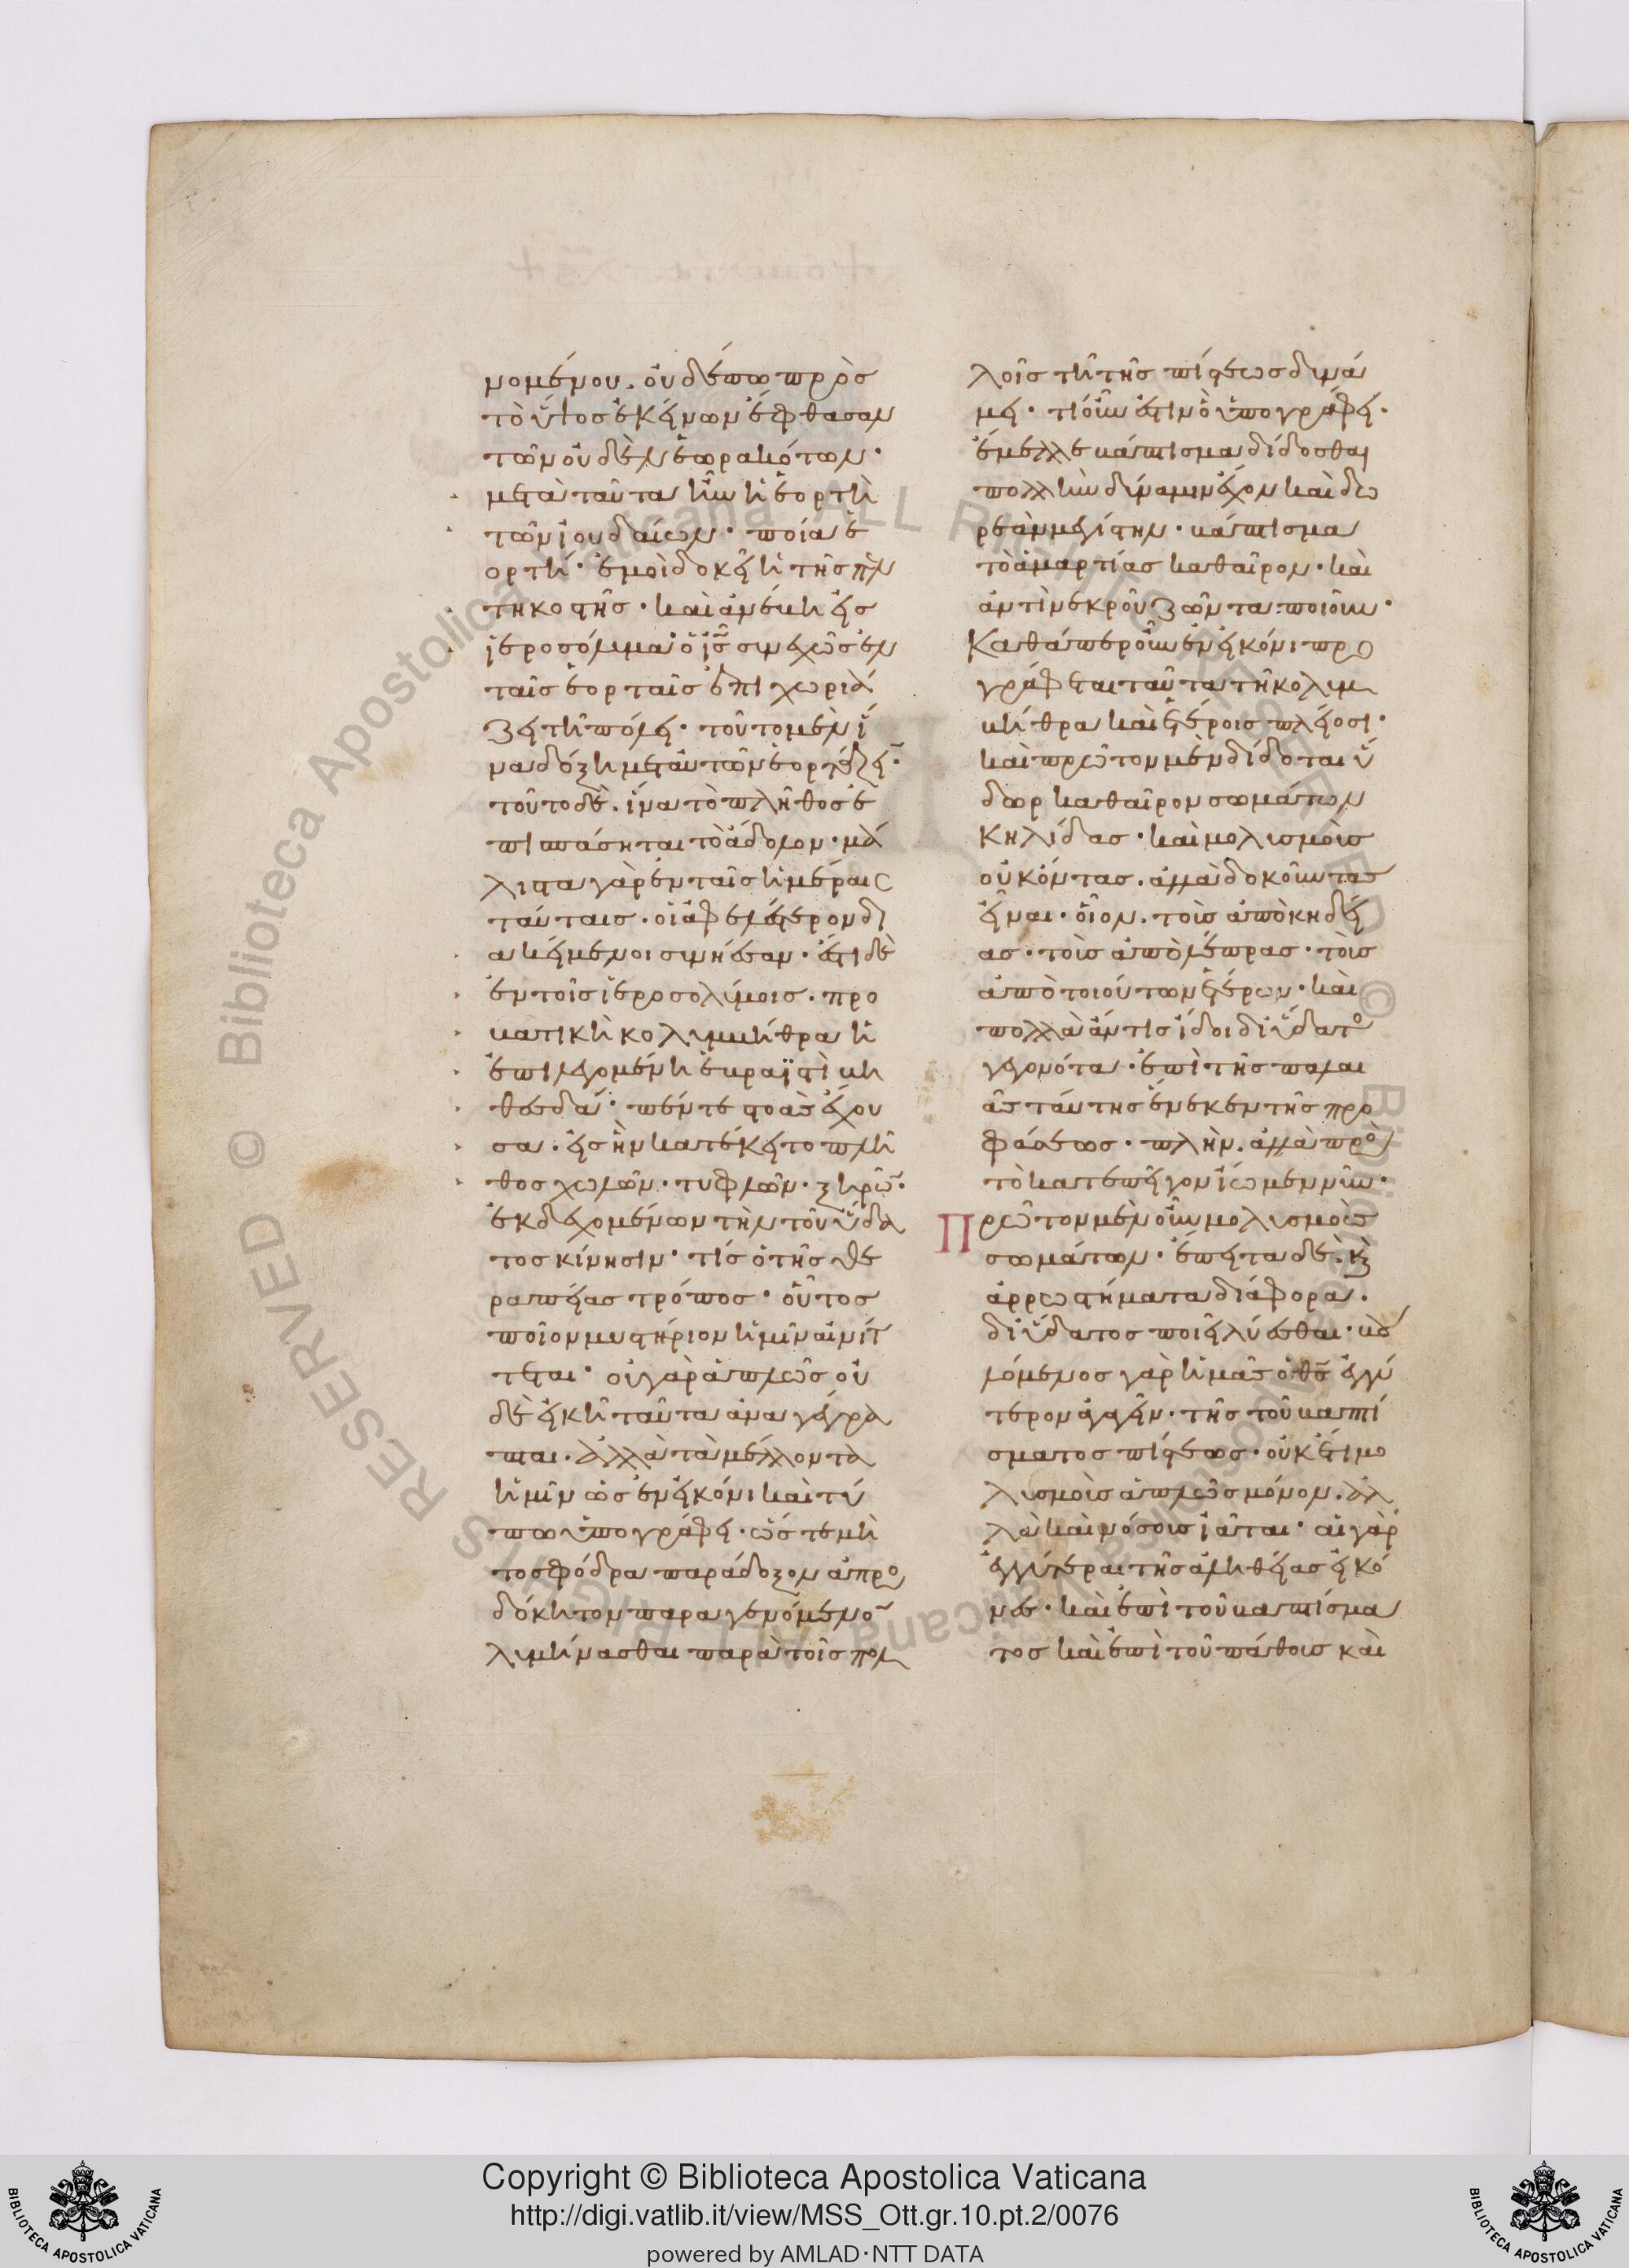 νομένου. οὐδέπω πρὸς
τὸ ὕψος ἐκείνων ἔφθασαν
τῶν οὐδὲν ἑωρακότων·
μετὰ ταῦτα ἦν ἡ ἑορτὴ
τῶν ἰουδαίων· ποία ἑ
ορτή· ἐμοὶ δοκεῖ ἡ τῆς πεν
τηκοστῆς· καὶ ἀνέβη εἰς
ἱεροσόλυμα ὁ ἰς συνεχῶς ἐν
ταῖς ἑορταῖς ἐπιχωριά
ζει τῆ πόλει· τοῦτο μὲν ἵ
να δόξη μετ' αὐτῶν ἑορτάζειν·
τοῦτο δὲ. ἵνα τὸ πλῆθος ἐ
πισπάσηται τὸ ἄδολον· μά
λιστα γὰρ ἐν ταῖς ἡμέραις
ταύταις. οἱ ἀφελέστερον δι
ακείμενοι συνήεσαν· ἔστι δὲ
ἐν τοῖς ἱεροσολύμοις. προ
βατικὴ κολυμβήθρα ἡ
ἐπιλεγομένη ἑβραϊστὶ βη
θεσδά· πέντε στοὰς ἔχου
σα. ἐς ἣν κατέκειτο πλῆ
θος χωλῶν· τυφλῶν· ξηρῶν·
ἐκδεχομένων τὴν τοῦ ὕδα
τος κίνησιν· τίς ὁ τῆς θε
ραπείας τρόπος· οὗτος
ποῖον μυστήριον ἡμῖν αἰνίτ
τεται· οὐ γὰρ ἁπλῶς οὐ
δὲ εἰκῆ ταῦτα ἀναγέγρα
πται. ἀλλὰ τὰ μέλλοντα
ἡμῖν ὡς ἐν εἰκόνι καὶ τύ
πω ὑπογράφει· ὥστε μὴ
τὸ σφόδρα παράδοξον ἀπρος
δόκητον παραγενόμενον
λυμήνασθαι παρὰ τοῖς πολ
λοῖς τῆ τῆς πίστεως δυνά
μει· τί οὖν ἐστιν ὃ ὑπογράφει·
ἔμελλε βάπτισμα δίδοσθαι
πολλὴν δύναμιν ἔχον καὶ δω
ρεὰν μεγίστην· βάπτισμα
τὸ ἁμαρτίας καθαῖρον· καὶ
ἀντὶ νεκροῦ ζῶντα ποιοῦν·
Καθάπερ οὖν ἐν εἰκόνι προ
γράφεται ταῦτα τῆ κολυμ
βήθρα καὶ ἑτέροις πλείοσι·
καὶ πρῶτον μὲν δίδοται ὕ
δωρ καθαῖρον σωμάτων
κηλίδας· καὶ μολυσμοὺς
οὐκ ὄντας. ἀλλὰ δοκοῦντας
εἶναι· οἷον. τοὺς ἀπὸ κηδεί
ας· τοὺς ἀπὸ λέπρας· τοὺς
ἀπὸ τοιούτων ἑτέρων· καὶ
πολλὰ ἄν τις ἴδοι δι' ὕδατος
γεγονότα· ἐπὶ τῆς παλαι
ᾶς ταύτης ἕνεκεν τῆς προ
φάσεως· πλὴν. ἀλλὰ πρὸς
τὸ κατεπεῖγον ἴωμεν νῦν·
Πρῶτον μὲν οὖν μολυσμοὺς
σωμάτων· ἔπειτα δὲ. κ
ἀρρωστήματα διάφορα.
δι' ὕδατος ποιεῖ λύεσθαι· βου
λόμενος γὰρ ἡμᾶς ὁ θς ἐγγύ
τερον ἀγαγεῖν· τῆς τοῦ βαπτί
σματος πίστεως· οὐκέτι μο
λυσμοὺς ἁπλῶς μόνον. ἀλ
λὰ καὶ νόσους ἰᾶται· αἱ γὰρ
ἐγγύτεραι τῆς ἀληθείας εἰκό
νες· καὶ ἐπὶ τοῦ βαπτίσμα
τος καὶ ἐπὶ τοῦ πάθους καὶ
Copyright © Biblioteca Apostolica Vaticana
http://digi.vatlib.it/view/MSS_Ott.gr.10.pt.2/0076
powered by AMLAD·NTT DATA